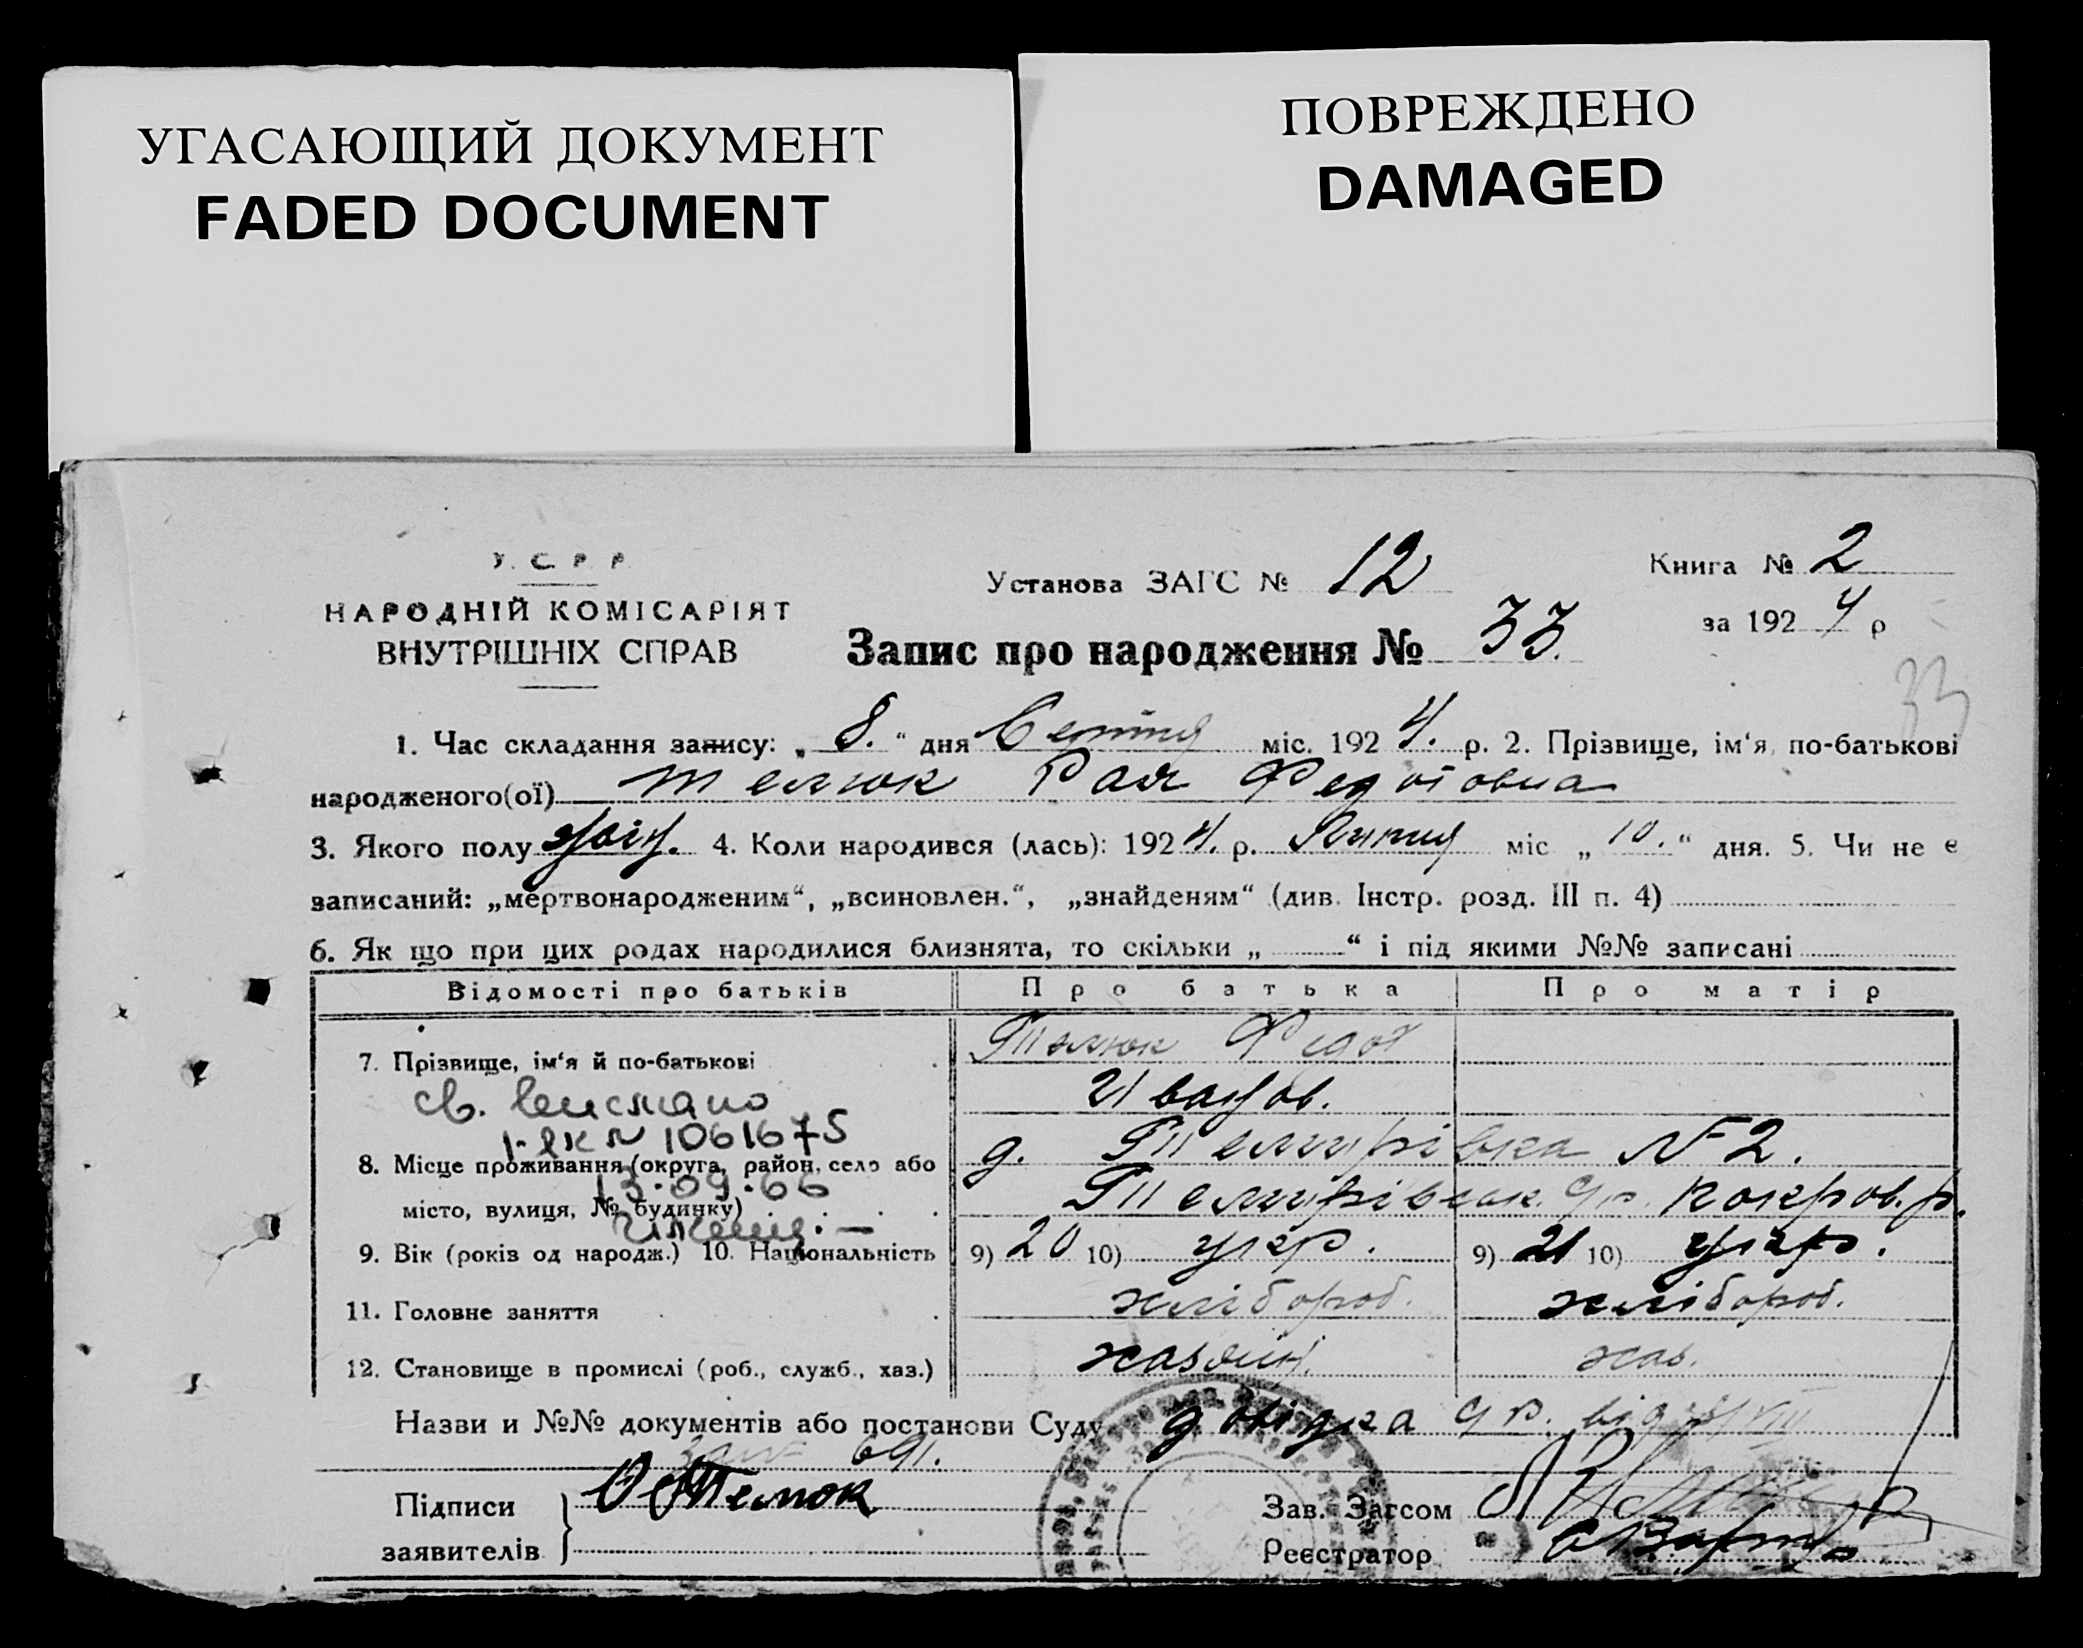 УГАСАЮЩИЙ ДОКУМЕНТ
FADED DOCUMENT
ПОВРЕЖДЕНО
DAMAGED
У. С. Р. Р.
НАРОДНІЙ КОМІСАРІЯТ
ВНУТРІШНІХ СПРАВ
Установа ЗАГС № 12
Книга № 2
за 1924 р
Запис про народження № 33.
33
1. Час складання запису: „ 8. “ дня Серпня міс. 1924. р. 2. Прізвище, ім‘я, по-батькові
народженого(ої) Телюк Рая Федотовна
3. Якого полу жін. 4. Коли народився (лась): 1924. р. Липня міс „ 10. “ дня. 5. Чи не є
записаний: „мертвонародженим“, „всиновлен.“, „знайденям“ (див. Інстр. розд. III п. 4)
6. Як що при цих родах народилися близнята, то скільки „ “ і під якими №№ записані
Відомості про батьків Про батька Про матір
7. Прізвище, ім‘я й по-батькові Телюк Федот
св. Иванов.
1061675
8. Місце проживання (округа, район, село або д. Темирівка №2.
13.09.66
місто, вулиця, № будинку) Темирівськ. Покров. р.
9. Вік (років од народж.) 10. Національність 9) 20 10) укр. 9) 21 10) укр.
11. Головне заняття хлібороб. хлібороб.
12. Становище в промислі (роб., служб., хаз.) хазяин. хаз.
Назви и №№ документів або постанови Суду довідка від
691.
Підписи Телюк
заявителів
Зав. Загсом
Реєстратор